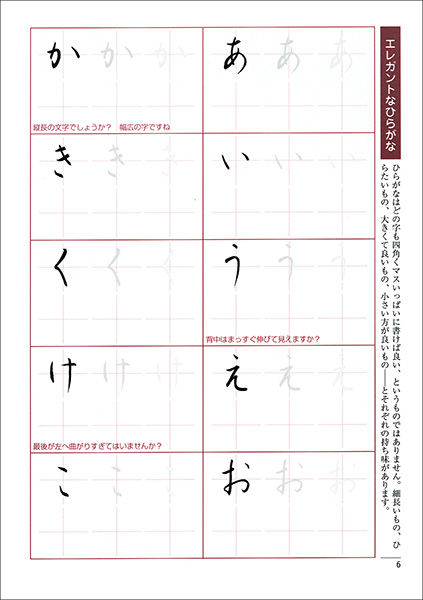 エレガントなひらがな
ひらがなはどの字も四角くマスいっぱいに書けば良い、というものではありません。細長いもの、ひ
らたいもの、大きくて良いもの、小さい方が良いもの――とそれぞれの持ち味があります。
あ あ あ
い い い
う う う
背中はまっすぐ伸びて見えますか?
え え え
お お お
か か か
縦長の文字でしょうか? 幅広の字ですね
き き き
く く く
け け け
最後が左へ曲がりすぎてはいませんか?
こ こ こ
6